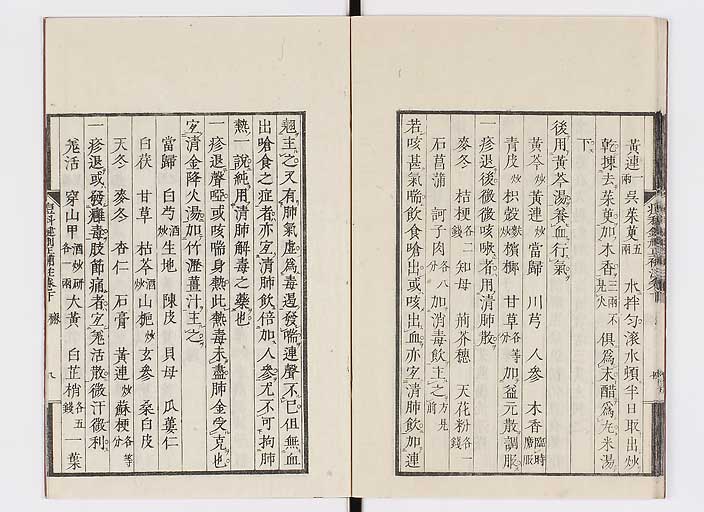 黃連一兩 吳茱萸五兩 水拌匀滾水頓半日取出炒
乾揀去茱萸加木香三兩不見火 俱爲末醋爲丸米湯
下
後用黃芩湯養血行氣
黃芩炒 黃連炒 當歸 川芎 人參 木香臨時磨服
青皮炒 枳殼麩炒 檳榔 甘草各等分 加益元散調服
一疹退後微微咳嗽者用清肺散
麥冬 桔梗各二錢 知母 荊芥穗 天花粉各一錢
石菖蒲 訶子肉各八分 加消毒飲主之方見前
若咳甚氣喘飲食嗆出或咳出血亦宜清肺飲加連
翹主之又有肺氣虛爲毒遏發喘連聲不已但無血
出嗆食之症者亦宜清肺飲倍加人參尤不可拘肺
熱一說純用清肺解毒之藥也
一疹退聲啞或咳喘身熱此熱毒未盡肺金受克也
宜清金降火湯加竹瀝薑汁主之
當歸 白芍酒炒 生地 陳皮 貝母 瓜蔞仁
白茯 甘草 枯芩酒炒 山梔炒 玄參 桑白皮
天冬 麥冬 杏仁 石膏 黃連炒 蘇梗各等分
一疹退或發癰毒肢節痛者宜羗活散微汗微利
羗活 穿山甲酒炒研各一兩 大黃 白芷梢各五錢 一葉
痘科鍵刪正補註卷下 疹 八